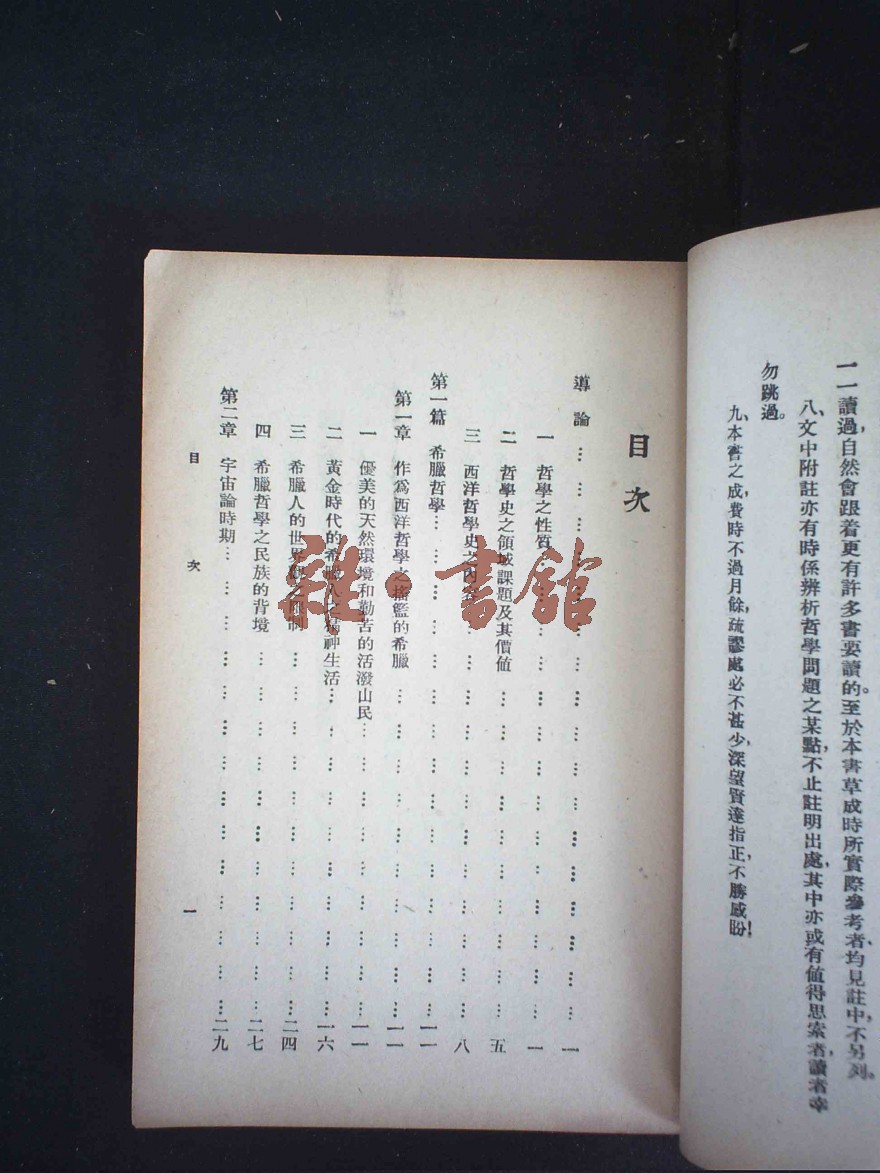 一一讀過,自然會跟着更有許多書要讀的。至於本書草成時所實際參考者,均見註中,不另列。
八、文中附註亦有時係辨析哲學問題之某點,不止註明出處,其中亦或有值得思索者,讀者幸
勿跳過。
九、本書之成,費時不過月餘,疏謬處必不甚少,深望賢達指正,不勝感盼!
目次
導論 … 一
一 哲學之性質 … 一
二 哲學史之領域課題及其價值 … 五
三 西洋哲學史之內容 … 八
第一篇 希臘哲學 … 一一
第一章 作爲西洋哲學之搖籃的希臘 … 一一
一 優美的天然環境和勤苦的活潑山民 … 一一
二 黃金時代的希臘人之精神生活 … 一六
三 希臘人的世界 … 限制 … 二四
四 希臘哲學之民族的背境 … 二七
第二章 宇宙論時期 … 二九
目次
一
雜·書館